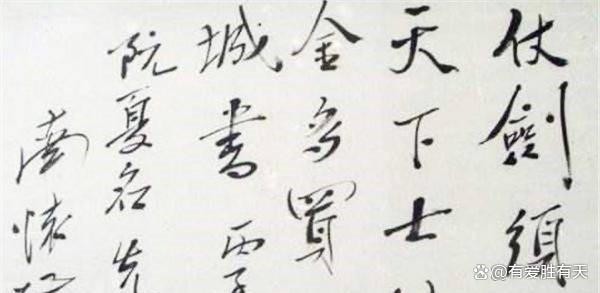 仗劍須
天下士
金多買
城書 丙子
阮夏名先
南懷
有爱胜有天